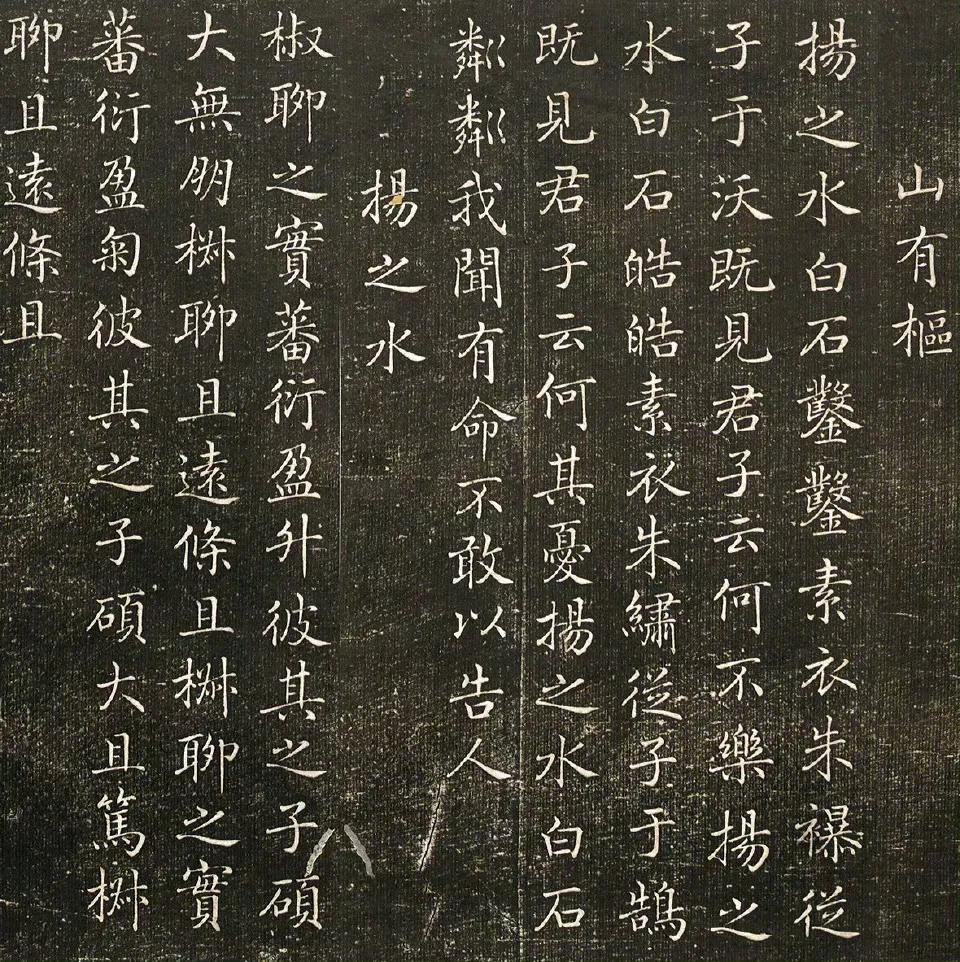 山有樞
揚之水白石鑿鑿素衣朱襮從
子于沃既見君子云何不樂揚之
水白石皓皓素衣朱繡從子于鵠
既見君子云何其憂揚之水白石
粼粼我聞有命不敢以告人
揚之水
椒聊之實蕃衍盈升彼其之子碩
大無朋椒聊且遠條且椒聊之實
蕃衍盈匊彼其之子碩大且篤椒
聊且遠條且